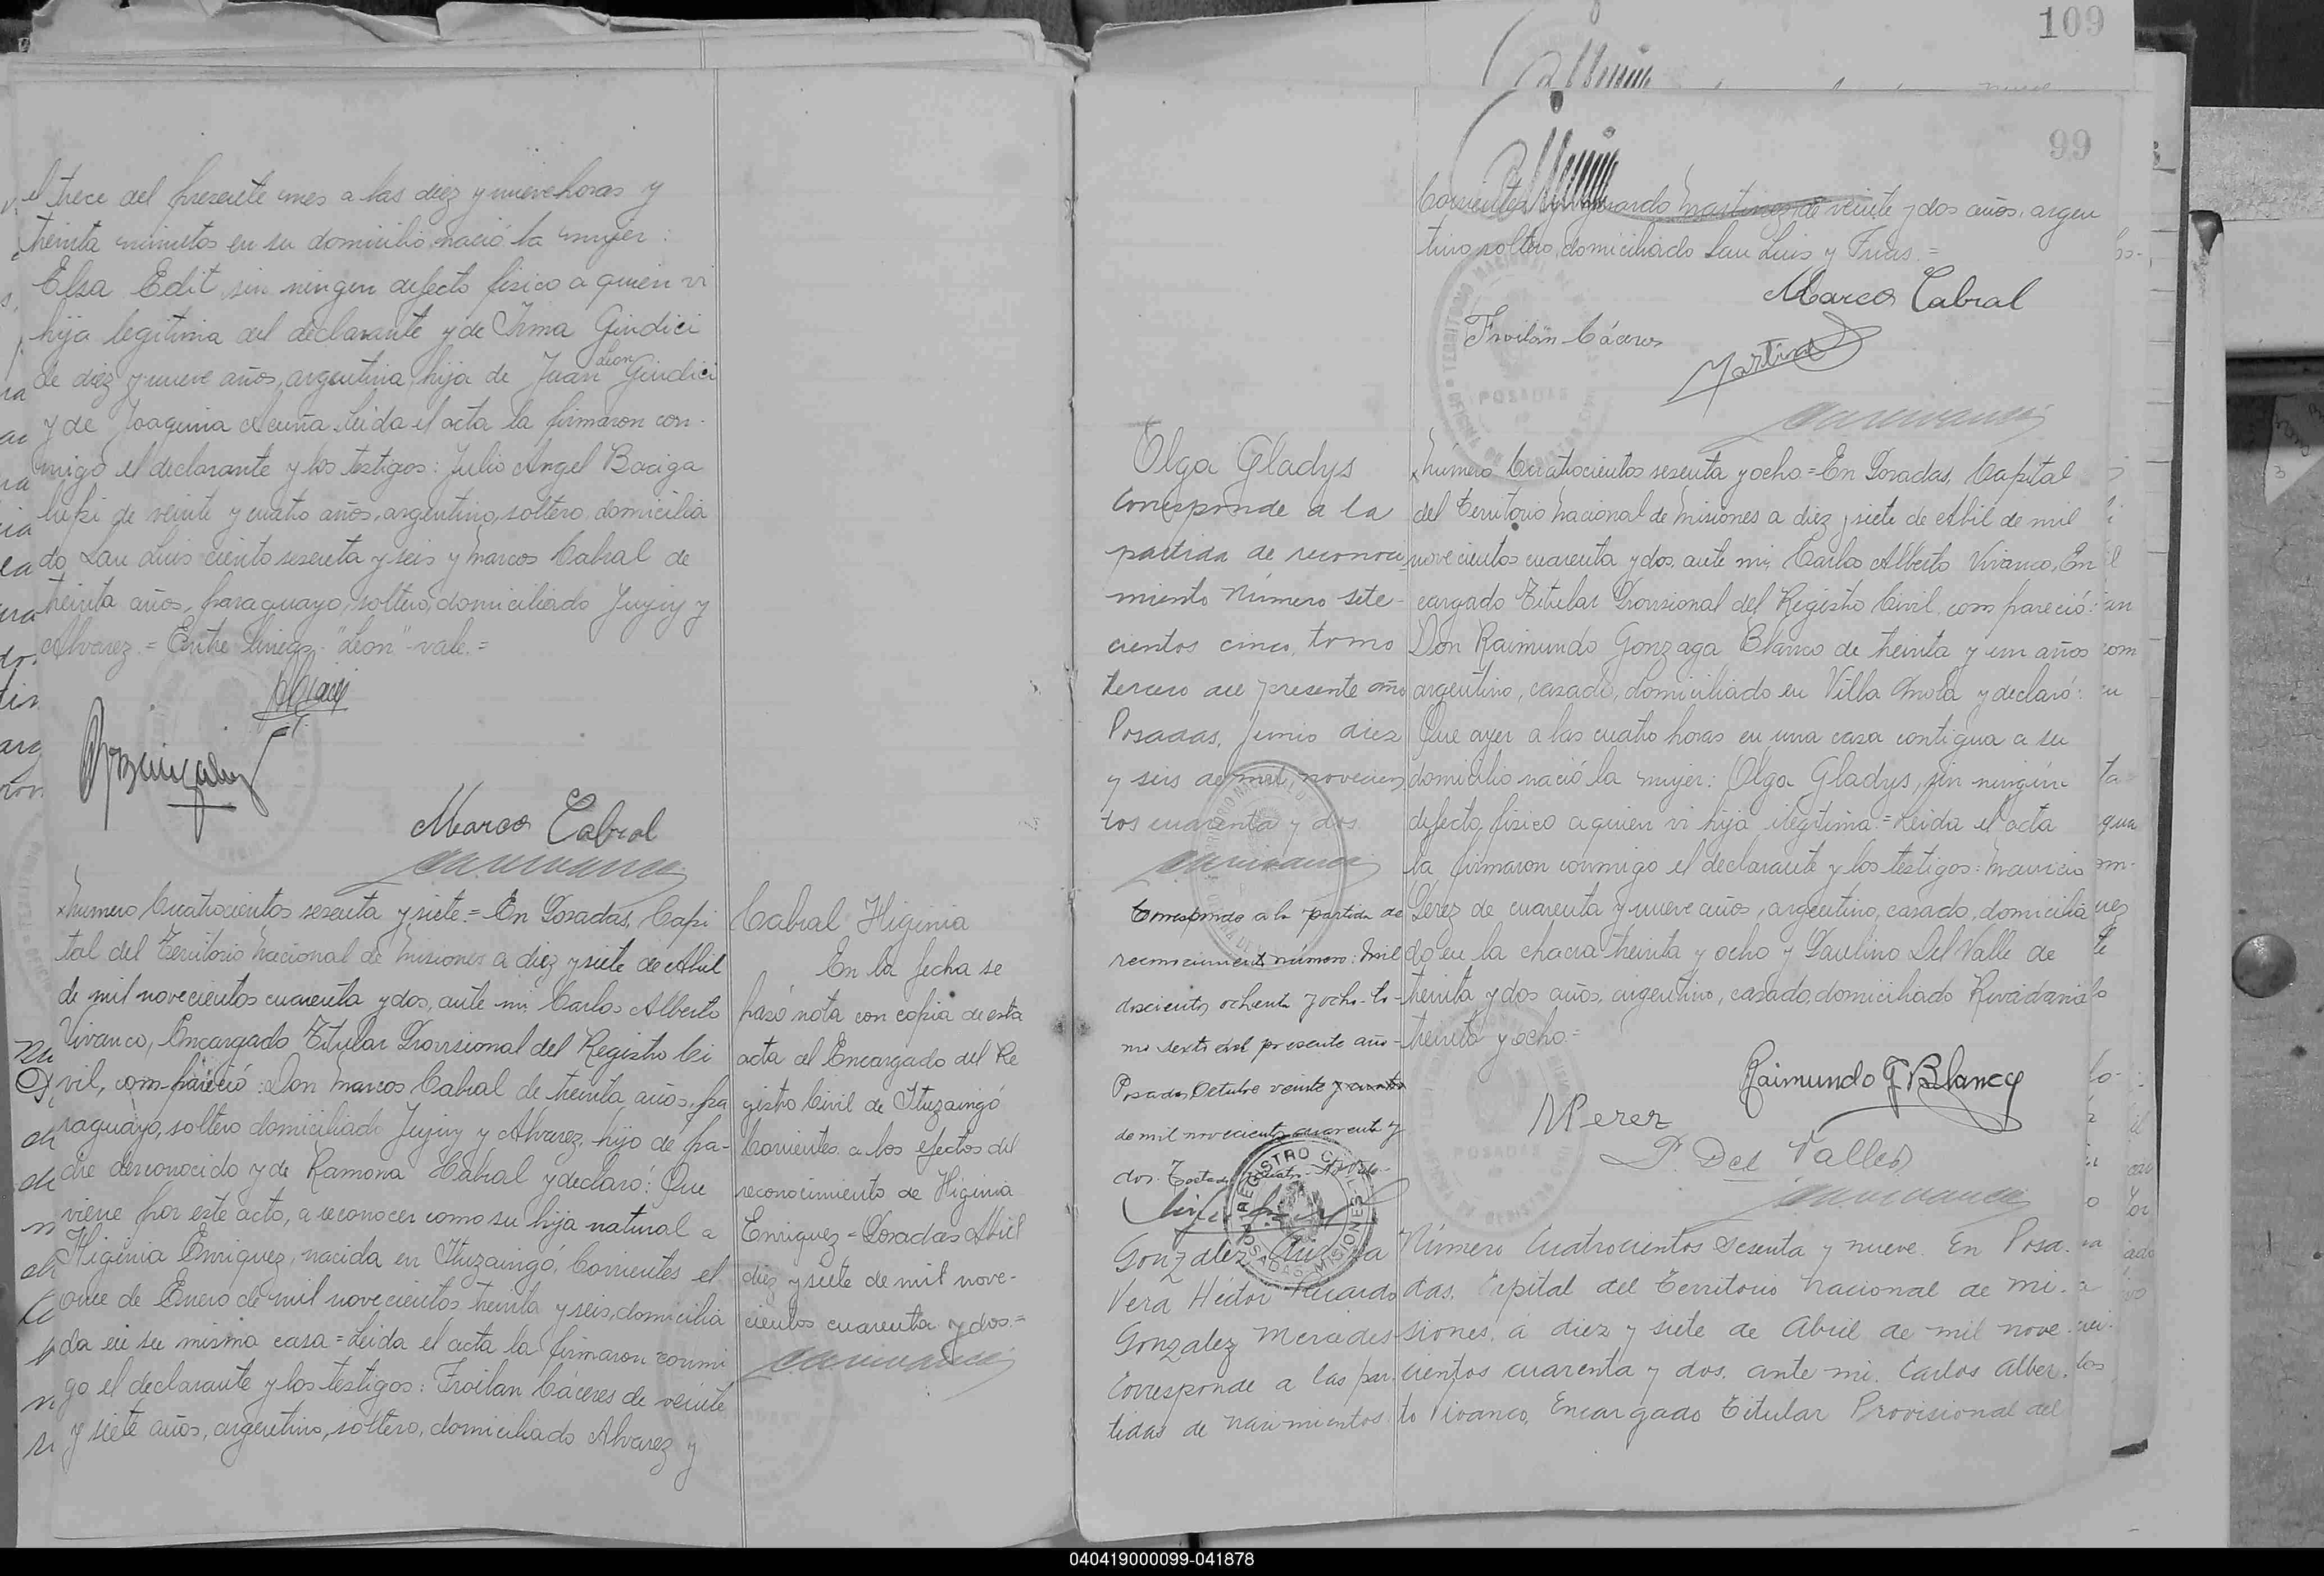 el trece del presente mes a las diez y nueve horas y
treinta minutos en su domicilio nació la mujer:
Elsa Edit, sin ningun defecto fisico a quien vi
hija legitima del declarante y de Irma Giudici
de diez y nueve años, argentina, hija de Juan Leon Giudici
y de Joaquina Acuña. Leida el acta la firmaron con-
migo el declarante y los testigos: Julio Angel Baciga
lupi de veinte y cuatro años, argentino, soltero domicilia
do San Luis ciento sesenta y seis y Marcos Cabral de
treinta años, paraguayo, soltero, domiciliado Jujuy y
Alvarez = Entre lineas: "Leon" - vale =
Marcos Cabral
Numero Cuatrocientos sesenta y siete = En Posadas, Capi
tal del Territorio Nacional de Misiones a diez y siete de Abril
de mil novecientos cuarenta y dos, ante mi, Carlos Alberto
Vivanco, Encargado Titular Provisional del Registro Ci
vil, compareció: Don Marcos Cabral de treinta años, pa
raguayo, soltero domiciliado Jujuy y Alvarez, hijo de pa-
dre desconocido y de Ramona Cabral y declaró: Que
viene por este acto, a reconocer como su hija natural a
Higinia Enriquez, nacida en Ituzaingó, Corrientes el
once de Enero de mil novecientos treinta y seis, domicilia
da en su misma casa = Leida el acta la firmaron conmi
go el declarante y los testigos: Froilan Cáceres de veinte
y siete años, argentino, soltero, domiciliado Alvarez y
Cabral Higinia
En la fecha se
pasó nota con copia de esta
acta al Encargado del Re
gistro Civil de Ituzaingó
Corrientes a los efectos del
reconocimiento de Higinia
Enriquez = Posadas Abril
diez y siete de mil nove-
cientos cuarenta y dos =
109
99
Corrientes y Martinez, de veinte y dos años, argen
tino soltero, domiciliado San Luis y Frias =
Marcos Cabral
Froilán Cáceres
Martinez
POSADAS
Olga Gladys
Corresponde a la
partida de reconoci
miento Número sete-
cientos cinco, tomo
tercero del presente año
Posadas, Junio diez
y seis de mil novecien
tos cuarenta y dos
Corresponde a la partida de
reconocimiento número: Mil
doscientos ochenta y ocho to-
mo sexto del presente año-
Posadas Octubre veinte y cuatro
de mil novecientos cuarenta y
dos.
Numero Cuatrocientos sesenta y ocho = En Posadas, Capital
del Territorio Nacional de Misiones a diez y siete de Abril de mil
novecientos cuarenta y dos, ante mi, Carlos Alberto Vivanco, En
cargado Titular Provisional del Registro Civil, compareció:
Don Raimundo Gonzaga Blanco de treinta y un años
argentino, casado, domiciliado en Villa Mola y declaró:
Que ayer a las cuatro horas en una casa contigua a su
domicilio nació la mujer: Olga Gladys, sin ningún
defecto fisico a quien vi hija ilegitima = Leida el acta
la firmaron conmigo el declarante y los testigos: Mauricio
Perez de cuarenta y nueve años, argentino, casado, domicilia
do en la chacra treinta y ocho y Paulino Del Valle de
treinta y dos años, argentino, casado, domiciliado Rivadavia
treinta y ocho =
Raimundo G Blanco
M Perez
P. Del Valle
POSADAS
REGISTRO CIVIL
POSADAS MISIONES
Gonzalez
Vera Héctor Ricardo
Gonzalez Mercedes
Corresponde a las par-
tidas de nacimientos
Número Cuatrocientos Sesenta y nueve. En Posa-
das, Capital del Territorio Nacional de Mi-
siones, a diez y siete de Abril de mil nove-
cientos cuarenta y dos, ante mi. Carlos Alber-
to Vivanco, Encargado Titular Provisional del
040419000099-041878